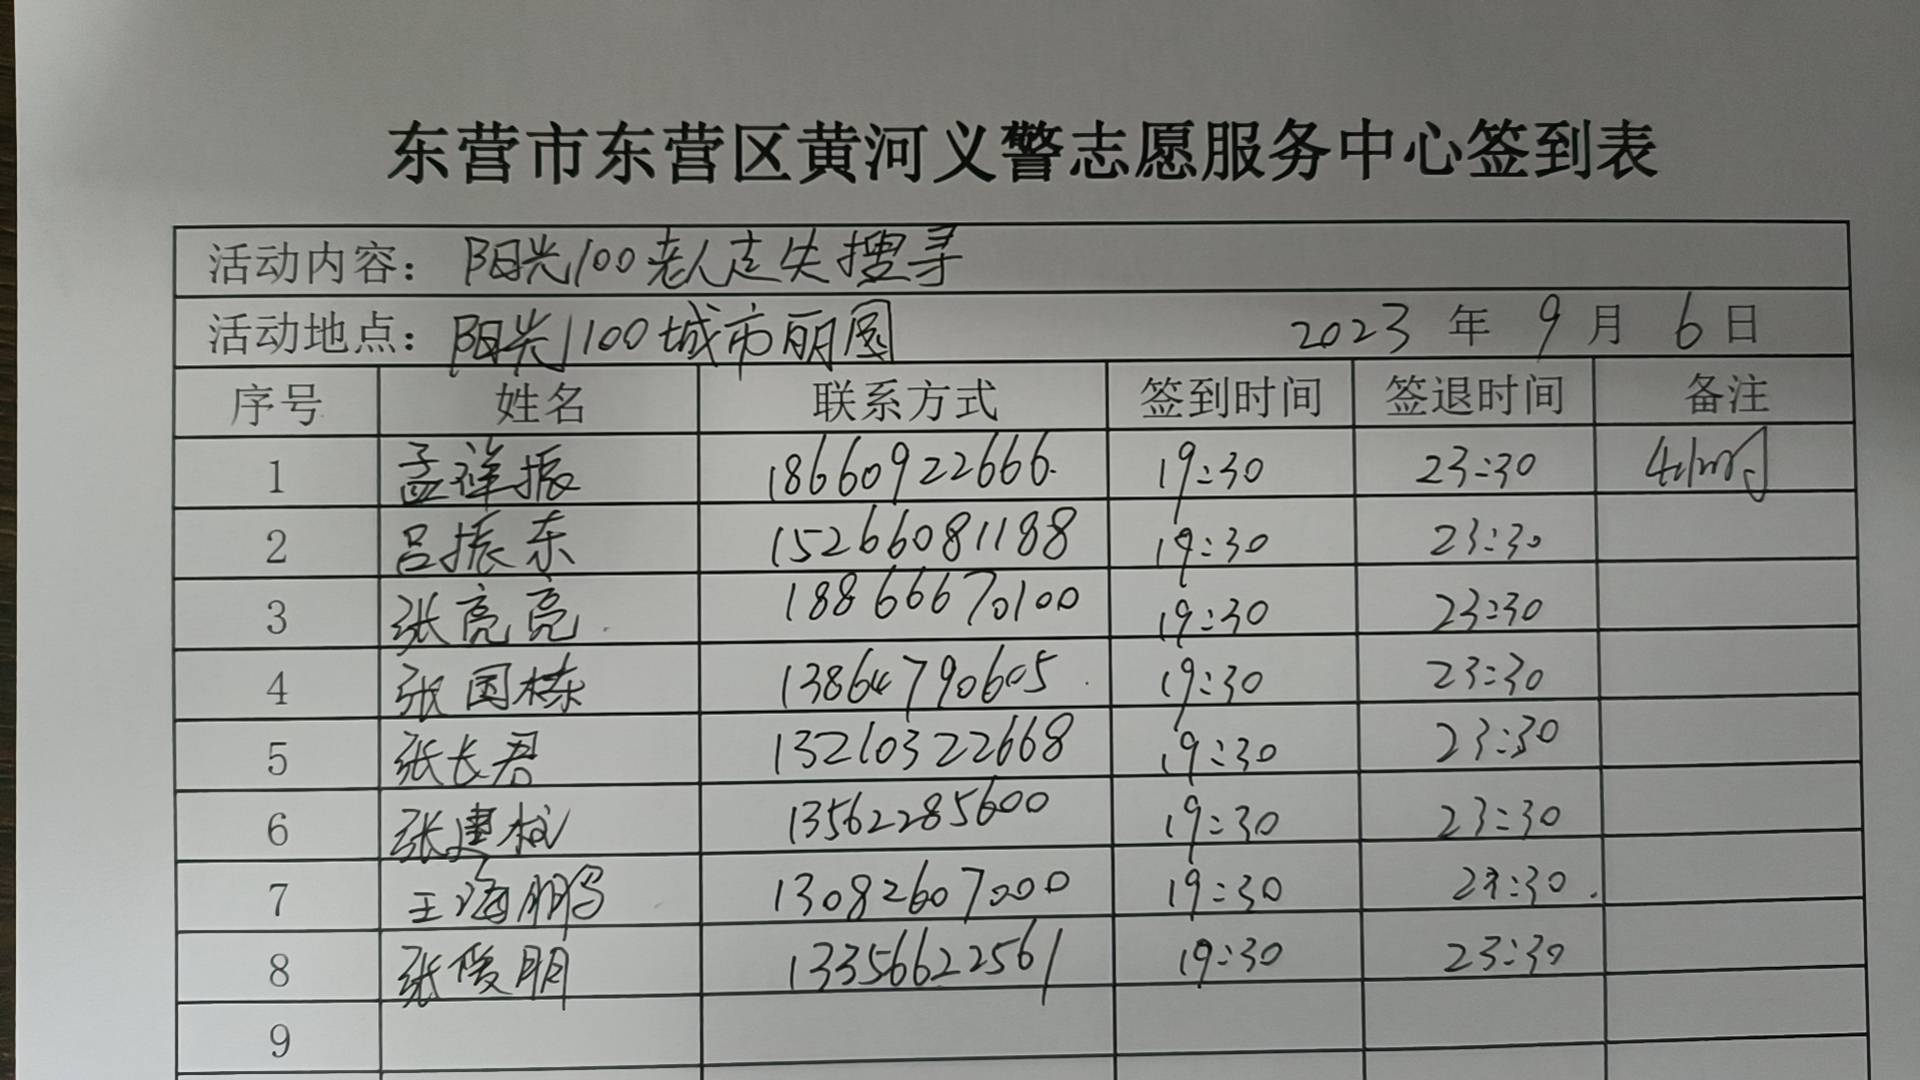 东营市东营区黄河义警志愿服务中心签到表
活动内容：阳光100老人走失搜寻
活动地点：阳光100城市丽园 2023 年 9 月 6 日
序号 姓名 联系方式 签到时间 签退时间 备注
1 孟祥振 18660922666 19:30 23:30 4小时
2 吕振东 15266081188 19:30 23:30
3 张亮亮 18866670100 19:30 23:30
4 张国栋 13864790605 19:30 23:30
5 张长君 13210322668 19:30 23:30
6 张建 13562285600 19:30 23:30
7 王海鹏 13082607000 19:30 23:30
8 张俊明 13356622561 19:30 23:30
9